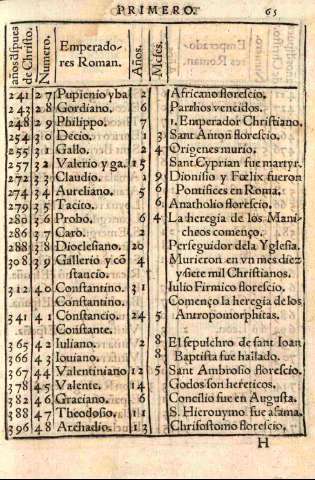 PRIMERO. 65
años dspues de Christo. Numero. Emperadores Roman. Años. Meses.
241 27 Pupienio yba 2 Africano florescio.
243 28 Gordiano. 6 Parthos vencidos.
248 29 Philippo. 7 1. Emperador Christiano.
254 30 Decio. 1 3 Sant Anton florescio.
255 31 Gallo. 2 4 Origenes murio.
257 32 Valerio y ga. 15 Sant Cyprian fue martyr.
272 33 Claudio. 1 9 Dionisio y Fœlix fueron
274 34 Aureliano. 5 6 Pontifices en Roma.
279 35 Tacito. 6 Anatholio florescio.
280 36 Probo. 6 4 La heregia de los Mani
286 37 Caro. 2 cheos començo.
288 38 Dioclesiano. 20 Perseguidor dela Yglesia.
308 39 Gallerio y cō 4 Murieron en vn mes diez
stancio. y siete mil Christianos.
312 40 Constantino. 31 Iulio Firmico florescio.
Constantino. Començo la heregia de los
341 41 Constancio. 24 5 Antropomorphitas.
Constante.
365 42 Iuliano. 2 8 El sepulchro de sant Ioan
366 43 Iouiano. 8 Baptista fue hallado.
367 44 Valentiniano 12 5 Sant Ambrosio florescio.
378 45 Valente. 14 Godos son hereticos.
382 46 Graciano. 6 Concilio fue en Augusta.
388 47 Theodosio. 11 S. Hieronymo fue afama.
396 48 Archadio. 13 Chrisostomo florescio.
H